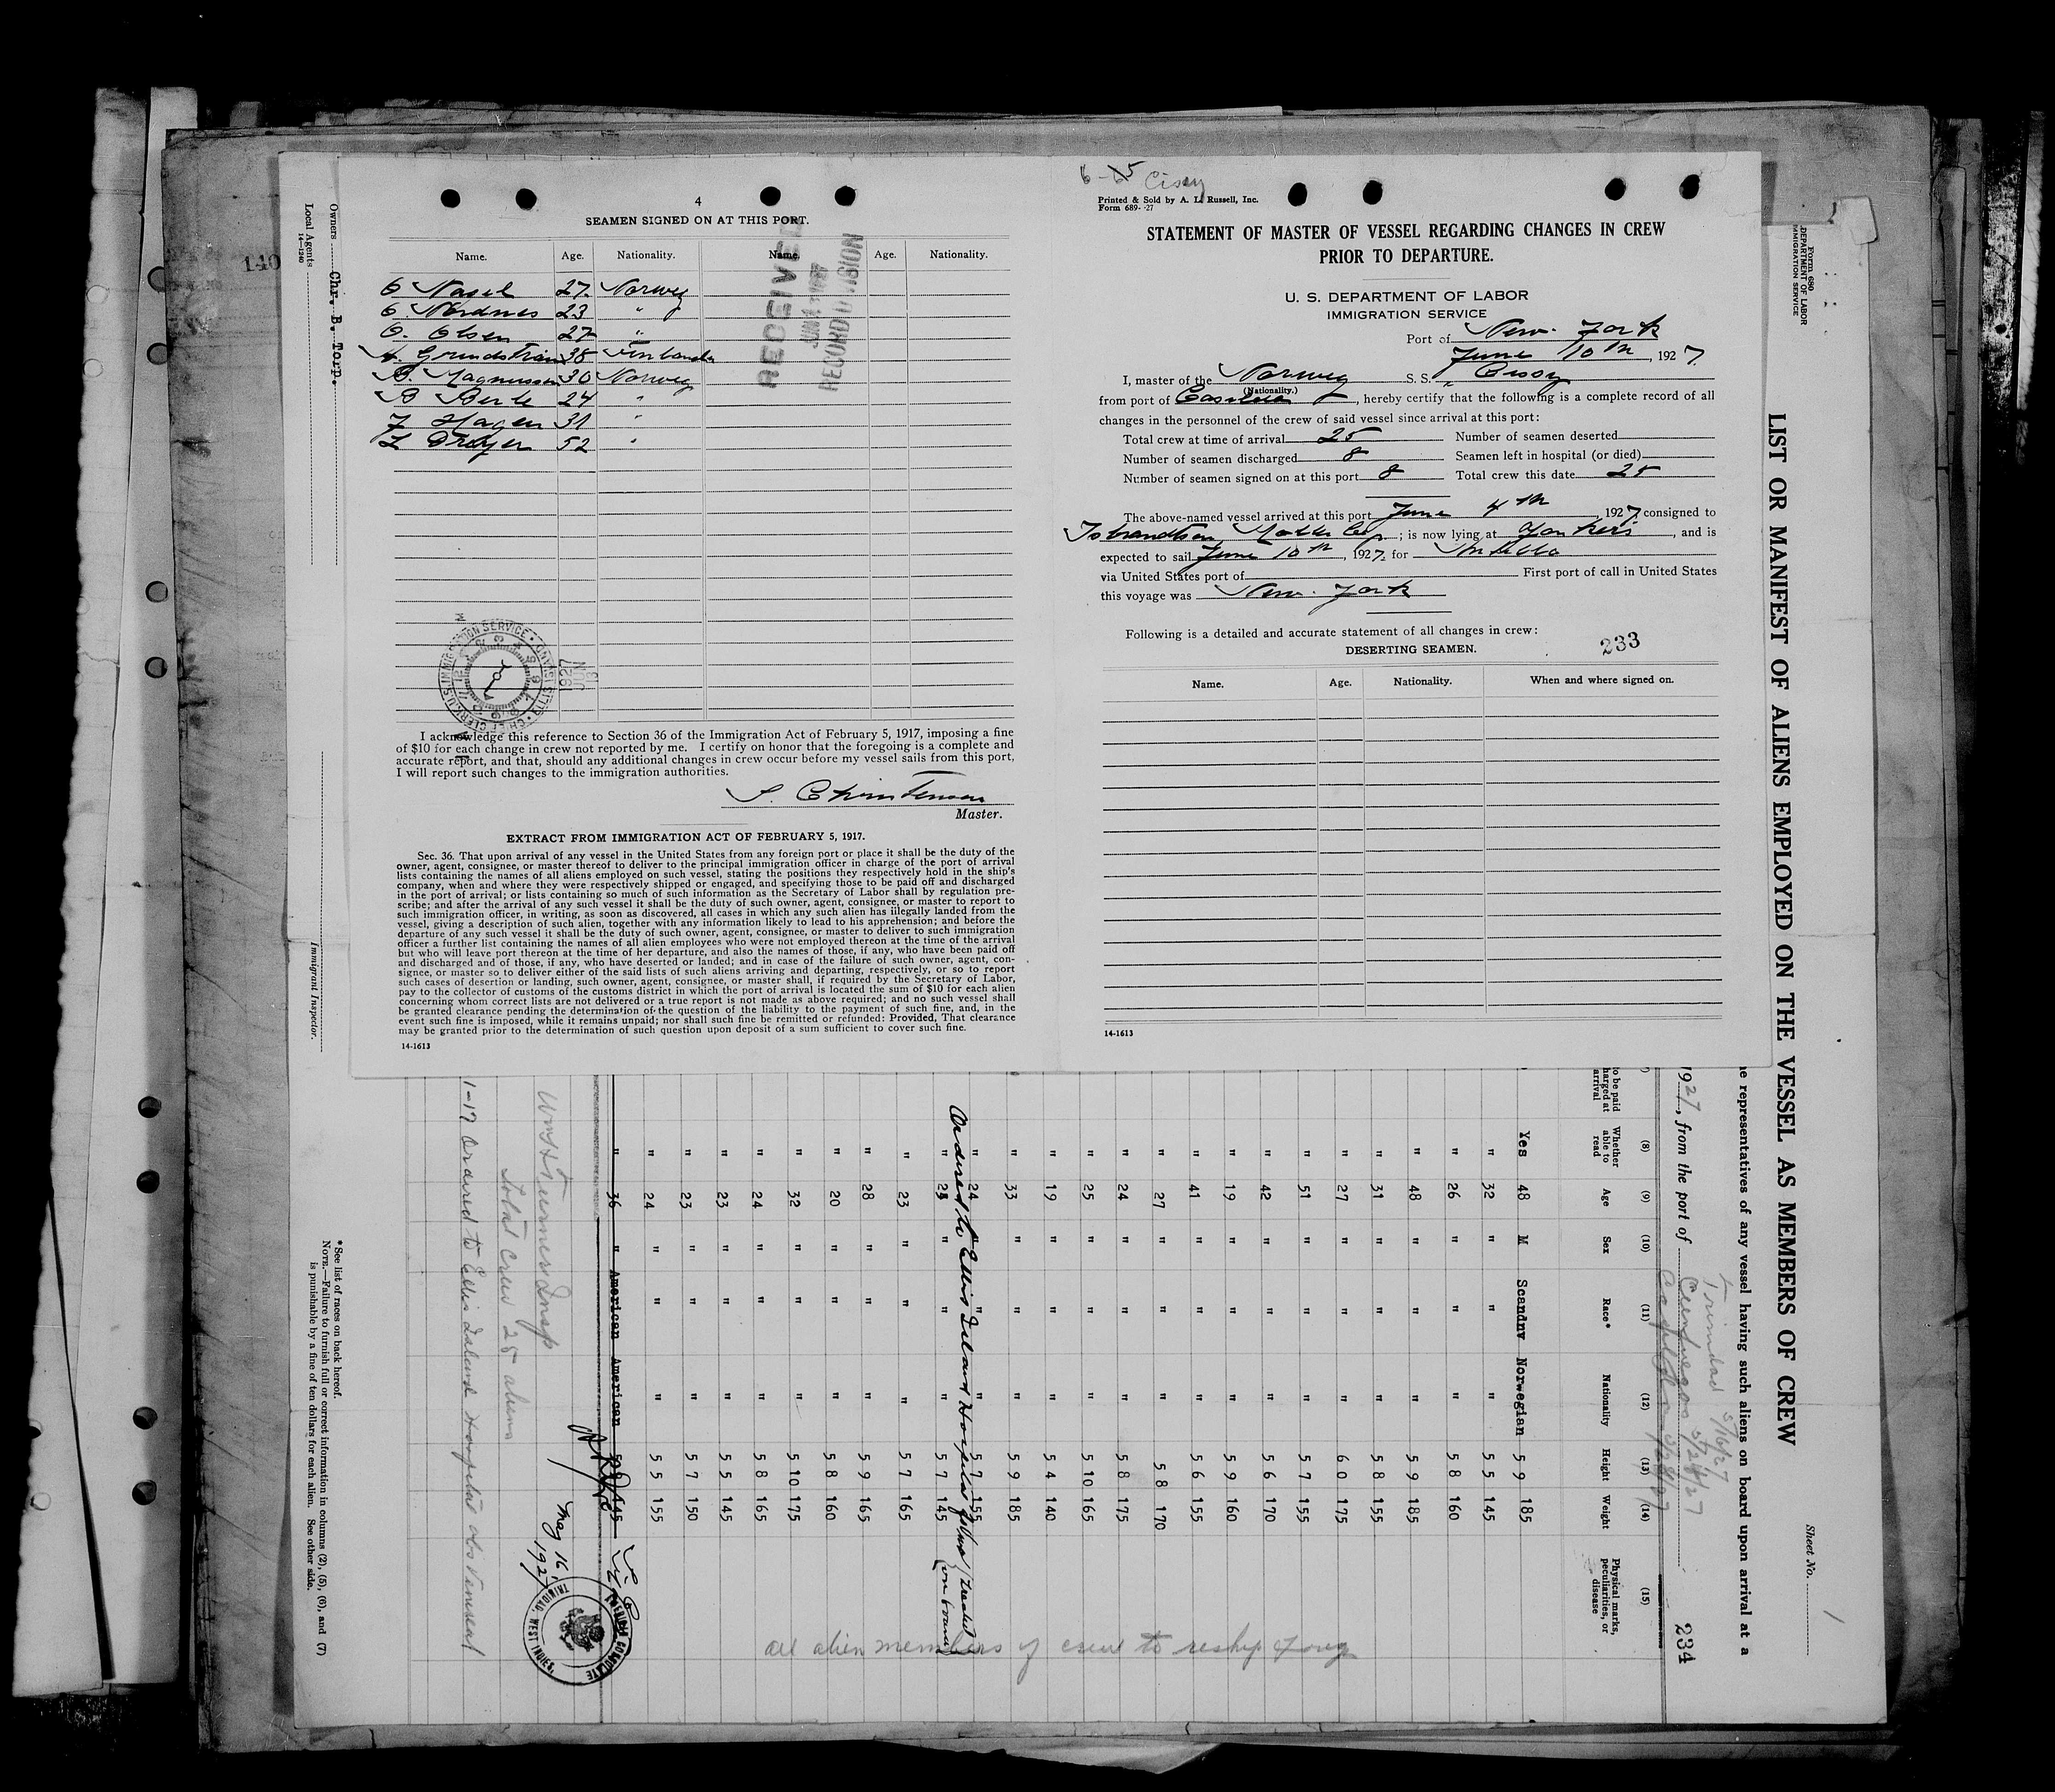 4
SEAMEN SIGNED ON AT THIS PORT.
Name. Age. Nationality. Name. Age. Nationality.
Nagel 27. Norweg
23 "
O. Olsen 27 "
38 Finlander
B. Magnussen 30 Norweg
B Berle 24 "
F Hagen 31 "
L Dreyer 52 "
RECEIVED
RECORD DIVISION
U.S. IMMIGRATION SERVICE
CHIEF CLERK
ELLIS ISLAND
1927
JUN
13
I acknowledge this reference to Section 36 of the Immigration Act of February 5, 1917, imposing a fine
of $10 for each change in crew not reported by me. I certify on honor that the foregoing is a complete and
accurate report, and that, should any additional changes in crew occur before my vessel sails from this port,
I will report such changes to the immigration authorities.
Christensen
Master.
EXTRACT FROM IMMIGRATION ACT OF FEBRUARY 5, 1917.
Sec. 36. That upon arrival of any vessel in the United States from any foreign port or place it shall be the duty of the
owner, agent, consignee, or master thereof to deliver to the principal immigration officer in charge of the port of arrival
lists containing the names of all aliens employed on such vessel, stating the positions they respectively hold in the ship's
company, when and where they were respectively shipped or engaged, and specifying those to be paid off and discharged
in the port of arrival; or lists containing so much of such information as the Secretary of Labor shall by regulation pre-
scribe; and after the arrival of any such vessel it shall be the duty of such owner, agent, consignee, or master to report to
such immigration officer, in writing, as soon as discovered, all cases in which any such alien has illegally landed from the
vessel, giving a description of such alien, together with any information likely to lead to his apprehension; and before the
departure of any such vessel it shall be the duty of such owner, agent, consignee, or master to deliver to such immigration
officer a further list containing the names of all alien employees who were not employed thereon at the time of the arrival
but who will leave port thereon at the time of her departure, and also the names of those, if any, who have been paid off
and discharged and of those, if any, who have deserted or landed; and in case of the failure of such owner, agent, con-
signee, or master so to deliver either of the said lists of such aliens arriving and departing, respectively, or so to report
such cases of desertion or landing, such owner, agent, consignee, or master shall, if required by the Secretary of Labor,
pay to the collector of customs of the customs district in which the port of arrival is located the sum of $10 for each alien
concerning whom correct lists are not delivered or a true report is not made as above required; and no such vessel shall
be granted clearance pending the determination of the question of the liability to the payment of such fine, and, in the
event such fine is imposed, while it remains unpaid; nor shall such fine be remitted or refunded: Provided, That clearance
may be granted prior to the determination of such question upon deposit of a sum sufficient to cover such fine.
14-1613
Cissy
Printed & Sold by A. L. Russell, Inc.
Form 689- -27
STATEMENT OF MASTER OF VESSEL REGARDING CHANGES IN CREW
PRIOR TO DEPARTURE.
U. S. DEPARTMENT OF LABOR
IMMIGRATION SERVICE
Port of New York
June 10th, 1927.
I, master of the Norweg S. S. Cissy
(Nationality.)
from port of Casilda, hereby certify that the following is a complete record of all
changes in the personnel of the crew of said vessel since arrival at this port:
Total crew at time of arrival 25 Number of seamen deserted
Number of seamen discharged 8 Seamen left in hospital (or died)
Number of seamen signed on at this port 8 Total crew this date 25
The above-named vessel arrived at this port June 4th, 1927, consigned to
Isbrandtsen ; is now lying at Yonkers, and is
expected to sail June 10th, 1927, for
via United States port of First port of call in United States
this voyage was New York
Following is a detailed and accurate statement of all changes in crew:
233
DESERTING SEAMEN.
Name. Age. Nationality. When and where signed on.
14-1613
Form 680
DEPARTMENT OF LABOR
IMMIGRATION SERVICE
LIST OR MANIFEST OF ALIENS EMPLOYED ON THE VESSEL AS MEMBERS OF CREW
Sheet No. 1
representatives of any vessel having such aliens on board upon arrival at a
1927, from the port of
Trinidad 5/16/27
Cienfuegos 5/26/27
234
(8) (9) (10) (11) (12) (13) (14) (15)
to be paid
arrival
Whether able to read
Age
Sex
Race*
Nationality
Height
Weight
Physical marks, peculiarities, or disease
Yes 48 M Scandnv Norwegian 5 9 185
" 32 " " " 5 5 145
" 26 " " " 5 8 160
" 48 " " " 5 9 185
" 31 " " " 5 8 155
" 27 " " " 6 0 175
" 51 " " " 5 7 155
" 42 " " " 5 6 170
" 19 " " " 5 9 160
" 41 " " " 5 6 155
" 27 " " " 5 8 170
" 24 " " " 5 8 175
" 25 " " " 5 10 165
" 19 " " " 5 4 140
" 33 " " " 5 9 185
" 24 " " " 5 7 155
Ordered to Ellis Island Hospital
on board
" 25 " " " 5 7 145
" 23 " " " 5 7 165
" 28 " " " 5 9 165
" 20 " " " 5 8 160
" 32 " " " 5 10 175
" 24 " " " 5 8 165
" 23 " " " 5 5 145
" 23 " " " 5 7 150
" 24 " " " 5 5 155
" 36 " American American 145
May 16, 1927
AMERICAN CONSULATE
TRINIDAD, WEST INDIES.
Total crew 25 aliens
1-17 Ordered to Ellis Island Hospital obs Venereal
all alien members of crew to reship foreign
*See list of races on back hereof.
NOTE.—Failure to furnish full or correct information in columns (2), (5), (6), and (7)
is punishable by a fine of ten dollars for each alien. See other side.
Owners Chr. B. Torp.
Local Agents
14—1240
Immigrant Inspector.
140